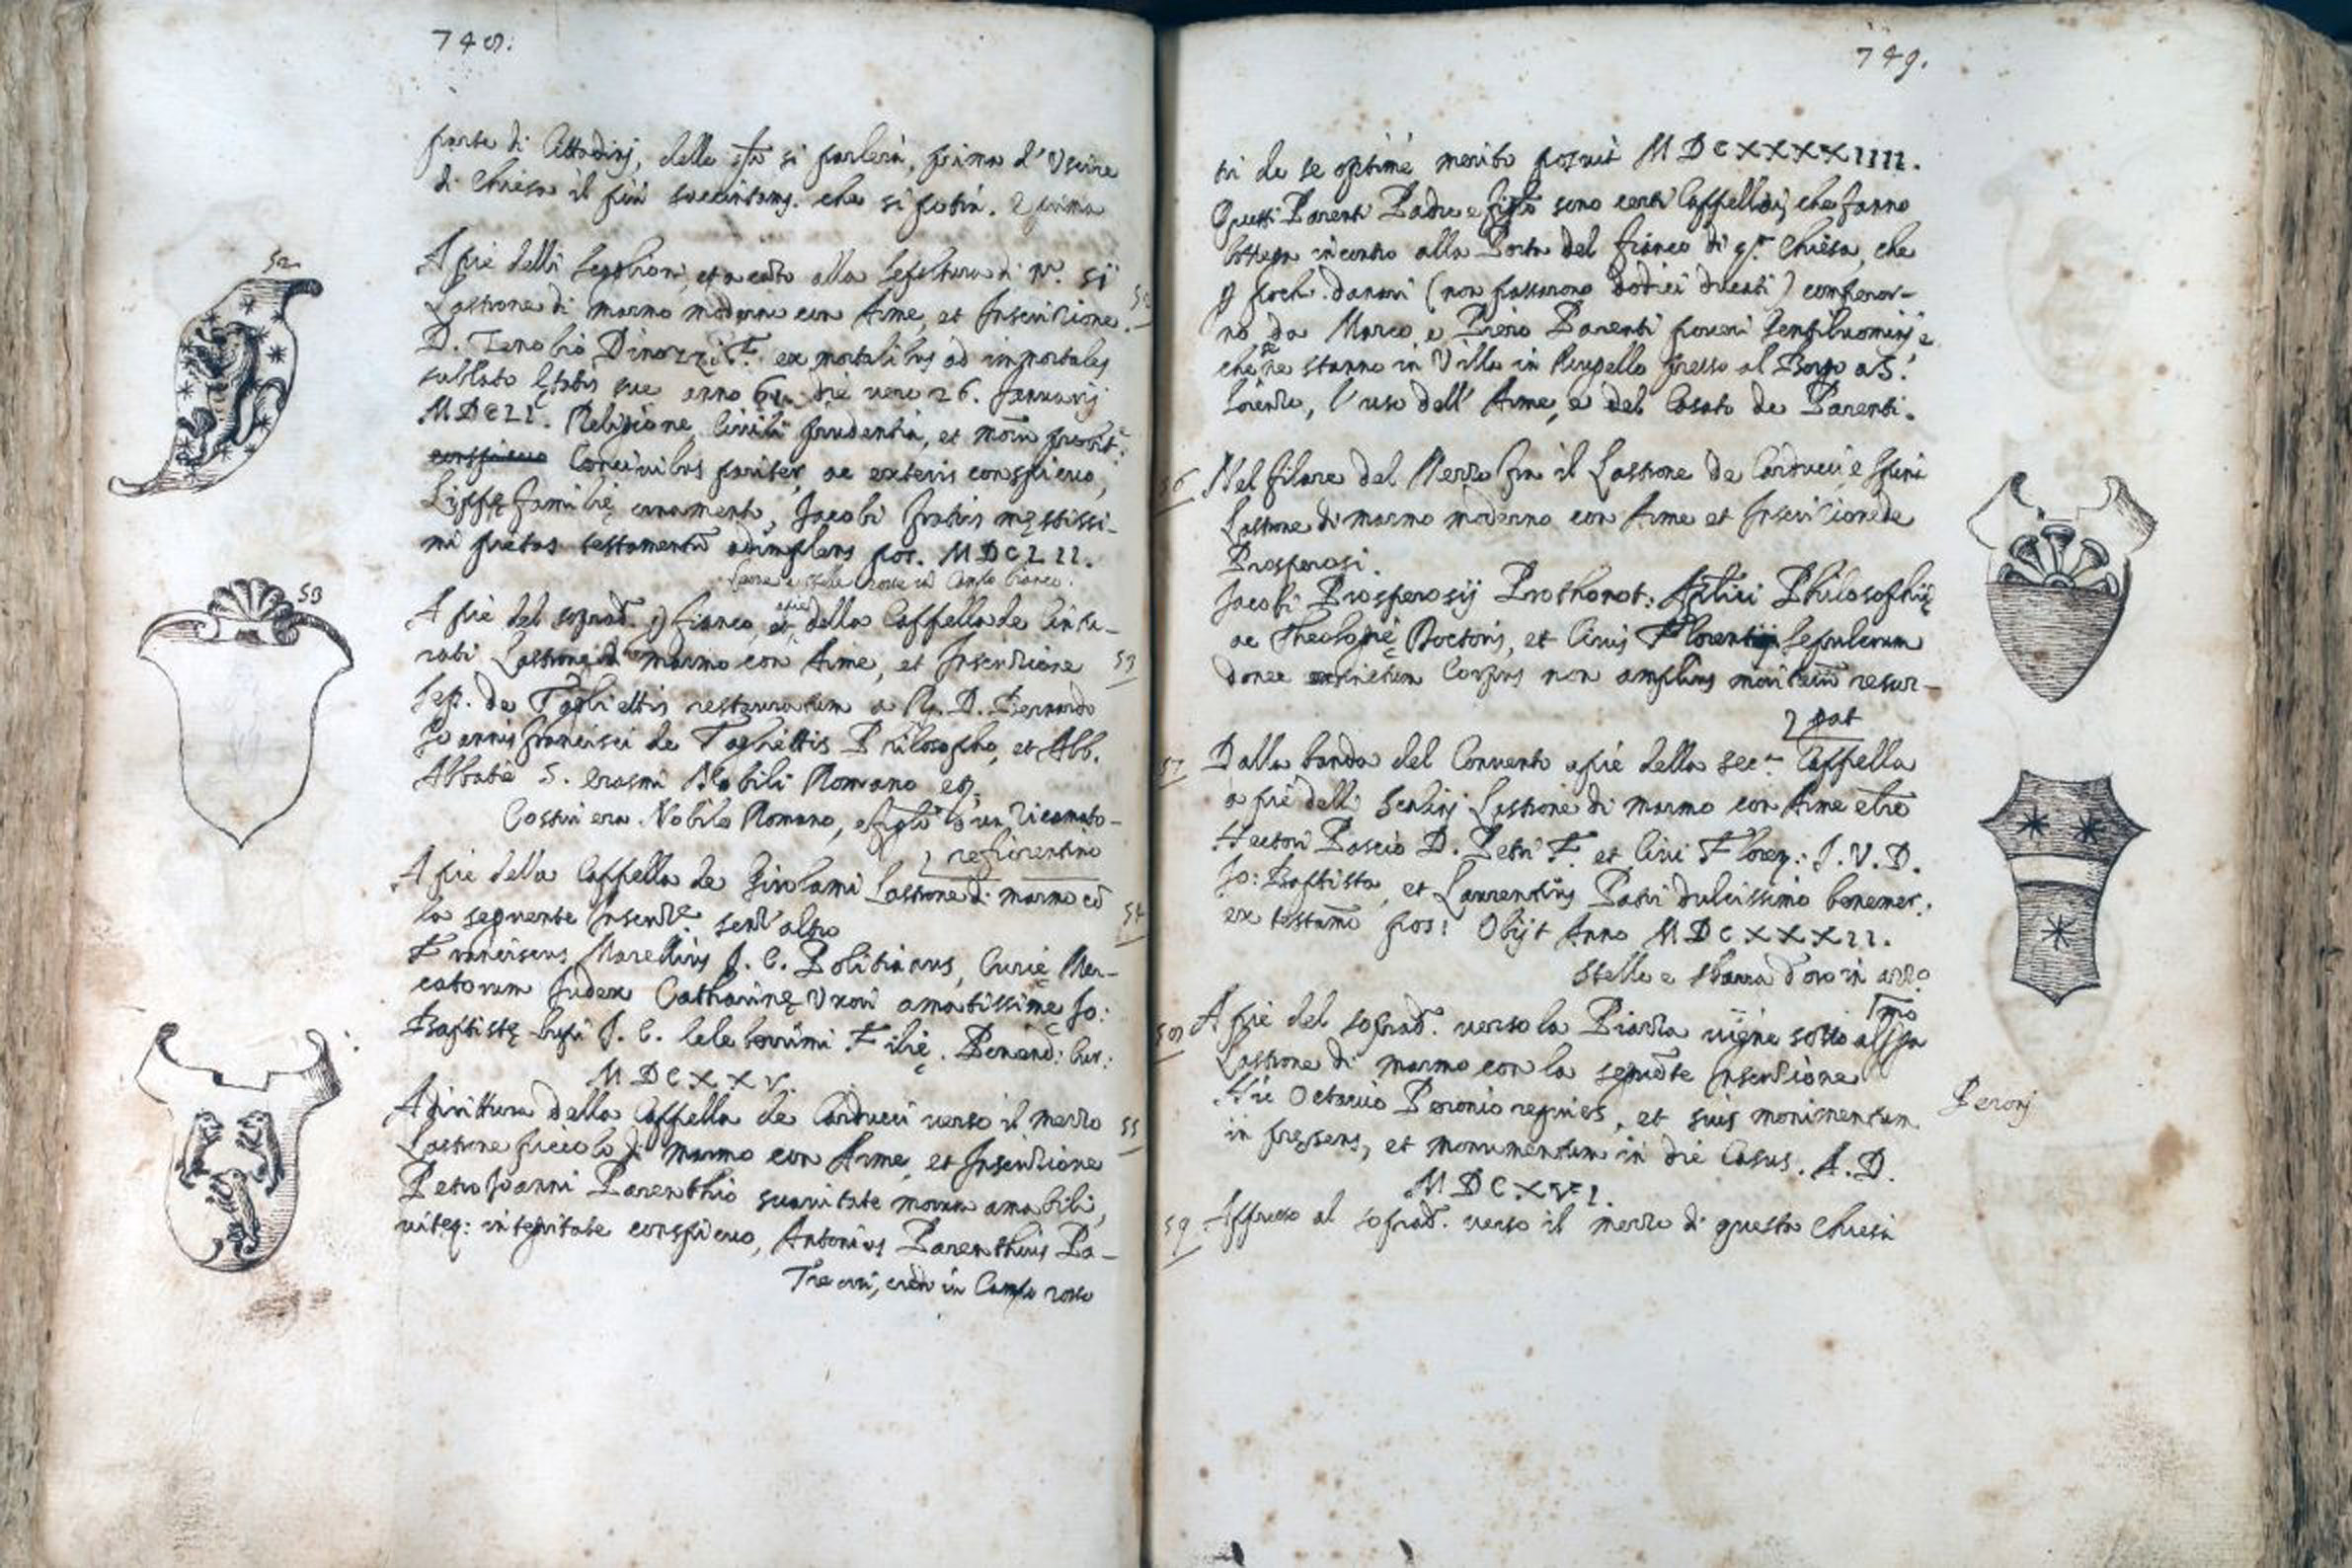 748.
parte di Cittadinj, delle
si parlerà, prima d'Uscire
di Chiesa il più che si potrà. E prima
52
A piè delli Scaglioni, et a cato alla Sepoltura di
Lastrone di marmo moderno con Arme, et Inscrizione. 52
D. Zenobio Dinozzi F. ex mortalibus ad immortales
sublato Ętatis sue anno die vero 26. Januarij
MDCLI. Religione, Civili prudentia, et
Concivibus pariter, ac exteris conspicuo,
familię ornamento, Jacobi fratris męstissi-
mi pietas testamentū adimplens pos. MDCLII.
e stelle rosse in Campo bianco.
53
A piè del soprad. fianco, della Cappella de
Lastrone di marmo con Arme, et Inscrizione 53
Sep. de Tagliettis restauratum a R. D. Bernardo
Joannis francisci de Tagliettis Philosopho, et Abb.
Abbatię S. Erasmi Nobili Romano eq.
Costui era Nobile Romano, e figlō d'un Ricamato-
re fiorentino
A piè della Cappella de Girolami Lastrone di marmo cō
la seguente Inscrizᵉ. senz'altro 54
Franciscus Morellius J. C. Politianus, Curię Mer-
catorum Judex Catharinę Uxori amatissimę Jo:
Baptistę J. C. Celeberrimi Filię.
MDCXXV.
A dirittura della Cappella de Carducci verso il mezzo 55
Lastrone piccolo di marmo con Arme, et Inscrizione
Petro Joanni Parenthio suavitate morum amabili,
vitęq: integritate conspicuo, Antonius Parenthius Pa-
Tre orsi, in Campo rosso
749.
tri de se optimè merito posuit MDCXXXXIIII.
Questi Parenti Padre e figlō sono certi Cappellaj, che fanno
bottega incontro alla Porta del fianco di qᵗᵃ Chiesa, che
p poch. danari (non passorono dodici ducati) comperor-
no da Marco, e Piero Parenti poveri Gentiluominj
che stanno in Villa in Mugello presso al Borgo a S.
Lorenzo, l'uso dell'Arme, e del Casato de Parenti.
56 Nel filare del Mezzo fra il Lastrone de Carducci, e Spini
Lastrone di marmo moderno con Arme et Inscrizione de
Prosperosi.
Jacobi Prosperosij Prothonot: Philosophię
ac Theologię Doctoris, et Civis Florentini Sepulcrum
donec extinctum Corpus non amplius moriturū resur-
gat
57 Dalla banda del Convento a piè della secᵃ Cappella
a piè delli Scalinj Lastrone di marmo con Arme
Hectori Pascio D. Petri F. et Civi Floren: J. V. D.
Jo: Baptista, et Laurentius Patri dulcissimo benemer:
ex testamō pos: Obijt Anno MDCXXXII.
Stelle e sbarra d'oro in azzo
58 A piè del soprad. verso la Piazza viene sotto
Lastrone di marmo con la seguēte Inscrizione
Hic Octavio Peronio requies, et suis monimentum
in pręsens, et monumentum in die Casus. A. D. Peronj
MDCXVI.
59 Appresso al soprad. verso il mezzo di questa Chiesa